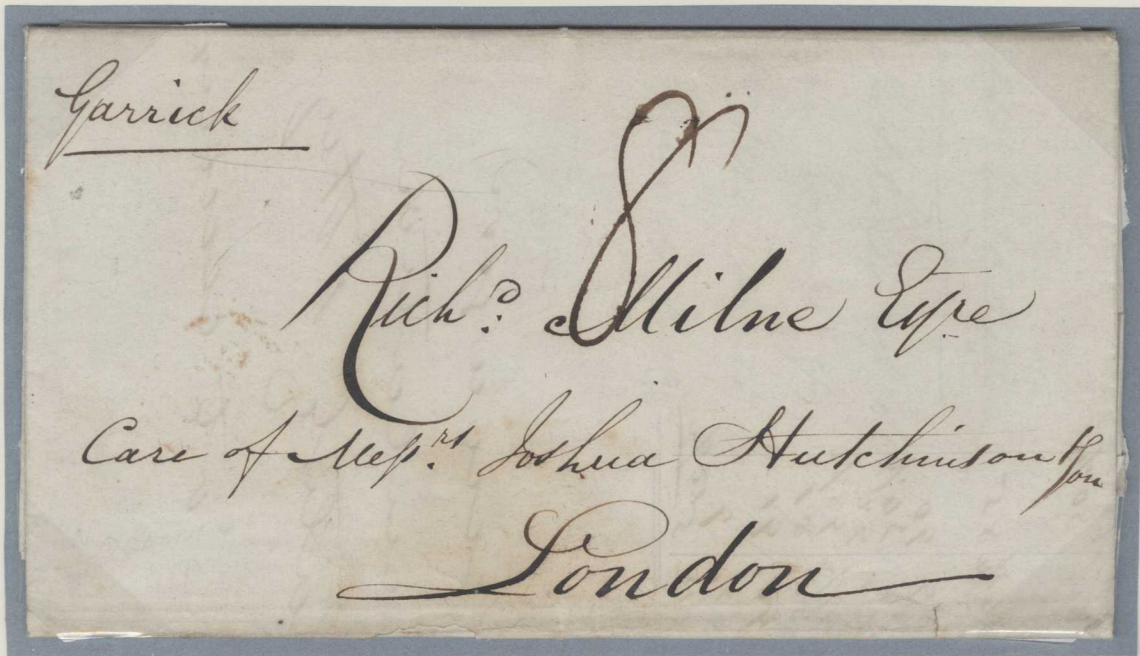 Garrick
8
Richd. Milne Esqre
Care of Messrs. Joshua Hutchinson & Son
London